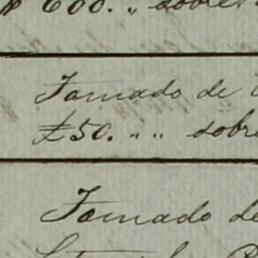 £ 600. „ sobre
Tomado de
£50. „ „ sobre
Tomado de